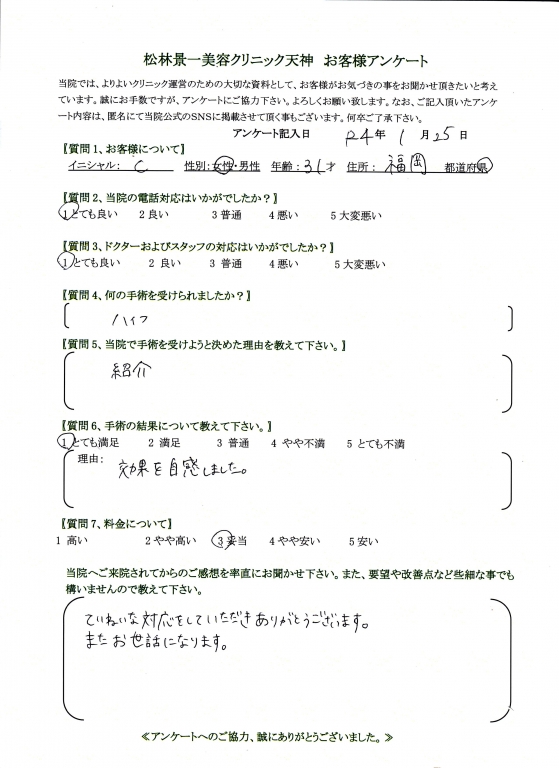 松林景一美容クリニック天神 お客様アンケート
当院では、よりよいクリニック運営のための大切な資料として、お客様がお気づきの事をお聞かせ頂きたいと考え
ています。誠にお手数ですが、アンケートにご協力下さい。よろしくお願い致します。なお、ご記入頂いたアンケ
ート内容は、匿名にて当院公式のSNSに掲載させて頂く事もございます。何卒ご了承下さい。
アンケート記入日 R4年 1月25日
【質問1、お客様について】
イニシャル: C 性別:女性・男性 年齢:31才 住所:福岡 都道府県
【質問2、当院の電話対応はいかがでしたか?】
1とても良い 2良い 3普通 4悪い 5大変悪い
【質問3、ドクターおよびスタッフの対応はいかがでしたか?】
1とても良い 2 良い 3 普通 4悪い 5大変悪い
【質問4、何の手術を受けられましたか?】
ハイフ
【質問5、当院で手術を受けようと決めた理由を教えて下さい。】
紹介
【質問6、手術の結果について教えて下さい。】
1とても満足 2 満足 3 普通 4 やや不満 5 とても不満
理由: 効果を自感しました。
【質問7、料金について】
1 高い 2やや高い 3妥当 4やや安い 5安い
当院へご来院されてからのご感想を率直にお聞かせ下さい。また、要望や改善点など些細な事でも
構いませんので教えて下さい。
ていねいな対応をしていただきありがとうございます。
またお世話になります。
≪アンケートへのご協力、誠にありがとうございました。≫